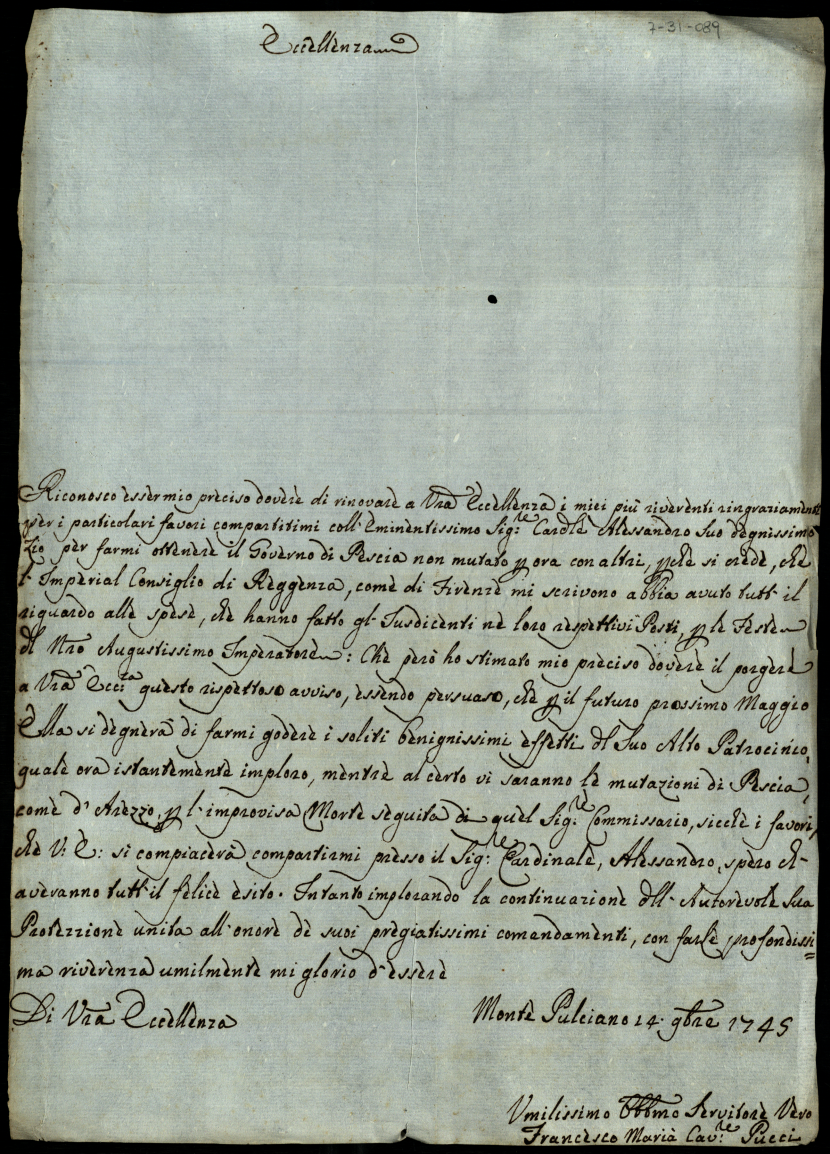 7-31-089
Eccellenza
Riconosco esser mio preciso dovere di rinovare a Vra Eccellenza i miei più riverenti ringraziamenti
per i particolari favori compartitimi coll'Eminentissimo Sig.re Cardle Alessandro Suo degnissimo
Zio per farmi ottenere il Governo di Pescia non mutato p ora con altri, pche si crede, che
l'Imperial Consiglio di Reggenza, come di Firenze mi scrivono abbia avuto tutt'il
riguardo alle spese, che hanno fatto gl'Jusdicenti ne loro respettivi Posti, p le Feste
del Nro Augustissimo Imperatore: Che però ho stimato mio preciso dovere il porgere
a Vra Ecc.za questo rispettoso avviso, essendo persuaso, che p il futuro prossimo Maggio
Ella si degnerà di farmi godere i soliti benignissimi effetti del Suo Alto Patrocinio,
quale ora istantemente imploro, mentre al certo vi saranno le mutazioni di Pescia,
come d'Arezzo, p l'improvisa Morte seguita di quel Sig.re Commissario, sicche i favori,
che V. E: si compiacerà compartirmi presso il Sig.re Cardinale, Alessandro, spero ch'
averanno tutt'il felice esito. Intanto implorando la continuazione dell'Autorevole Sua
Protezzione unita all'onore de suoi pregiatissimi comandamenti, con farle profondissi=
ma riverenza umilmente mi glorio d'essere
Di Vra Eccellenza Monte Pulciano 14. 9bre 1745
Umilissimo Obbmo Servitore Vero
Francesco Maria Cav.re Pucci